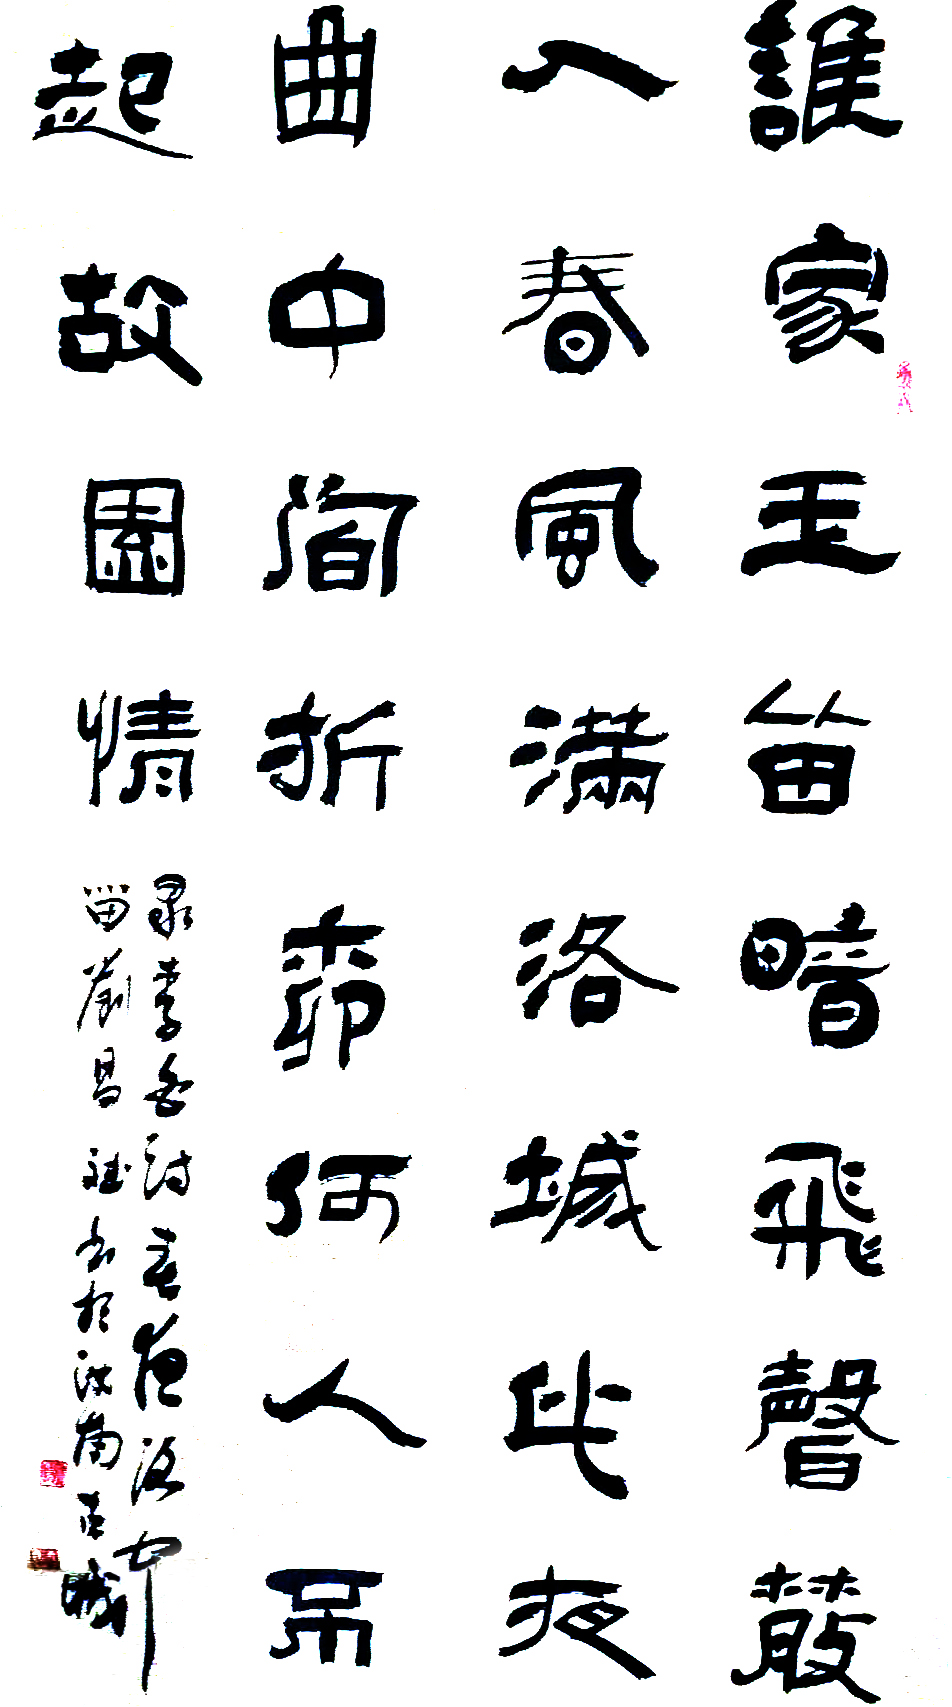 誰家玉笛暗飛聲散
入春風滿洛城此夜
曲中聞折柳何人不
起故園情
录李白詩春夜洛
笛劉昌斌书於汝南古城